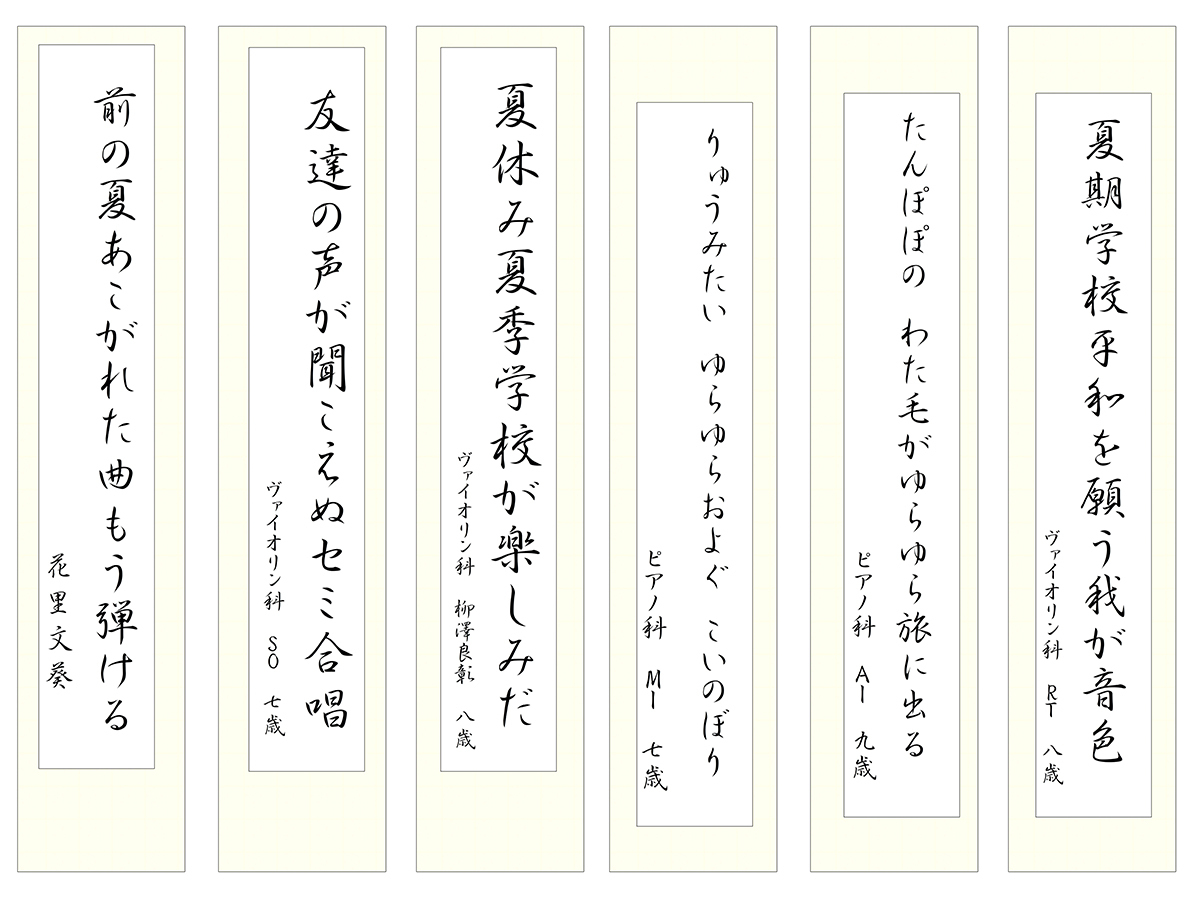 夏期学校平和を願う我が音色
ヴァイオリン科 RT 八歳
たんぽぽの わた毛がゆらゆら旅に出る
ピアノ科 AI 九歳
りゅうみたい ゆらゆらおよぐ こいのぼり
ピアノ科 MI 七歳
夏休み夏季学校が楽しみだ
ヴァイオリン科 柳澤良彰 八歳
友達の声が聞こえぬセミ合唱
ヴァイオリン科 SO 七歳
前の夏あこがれた曲もう弾ける
花里文葵